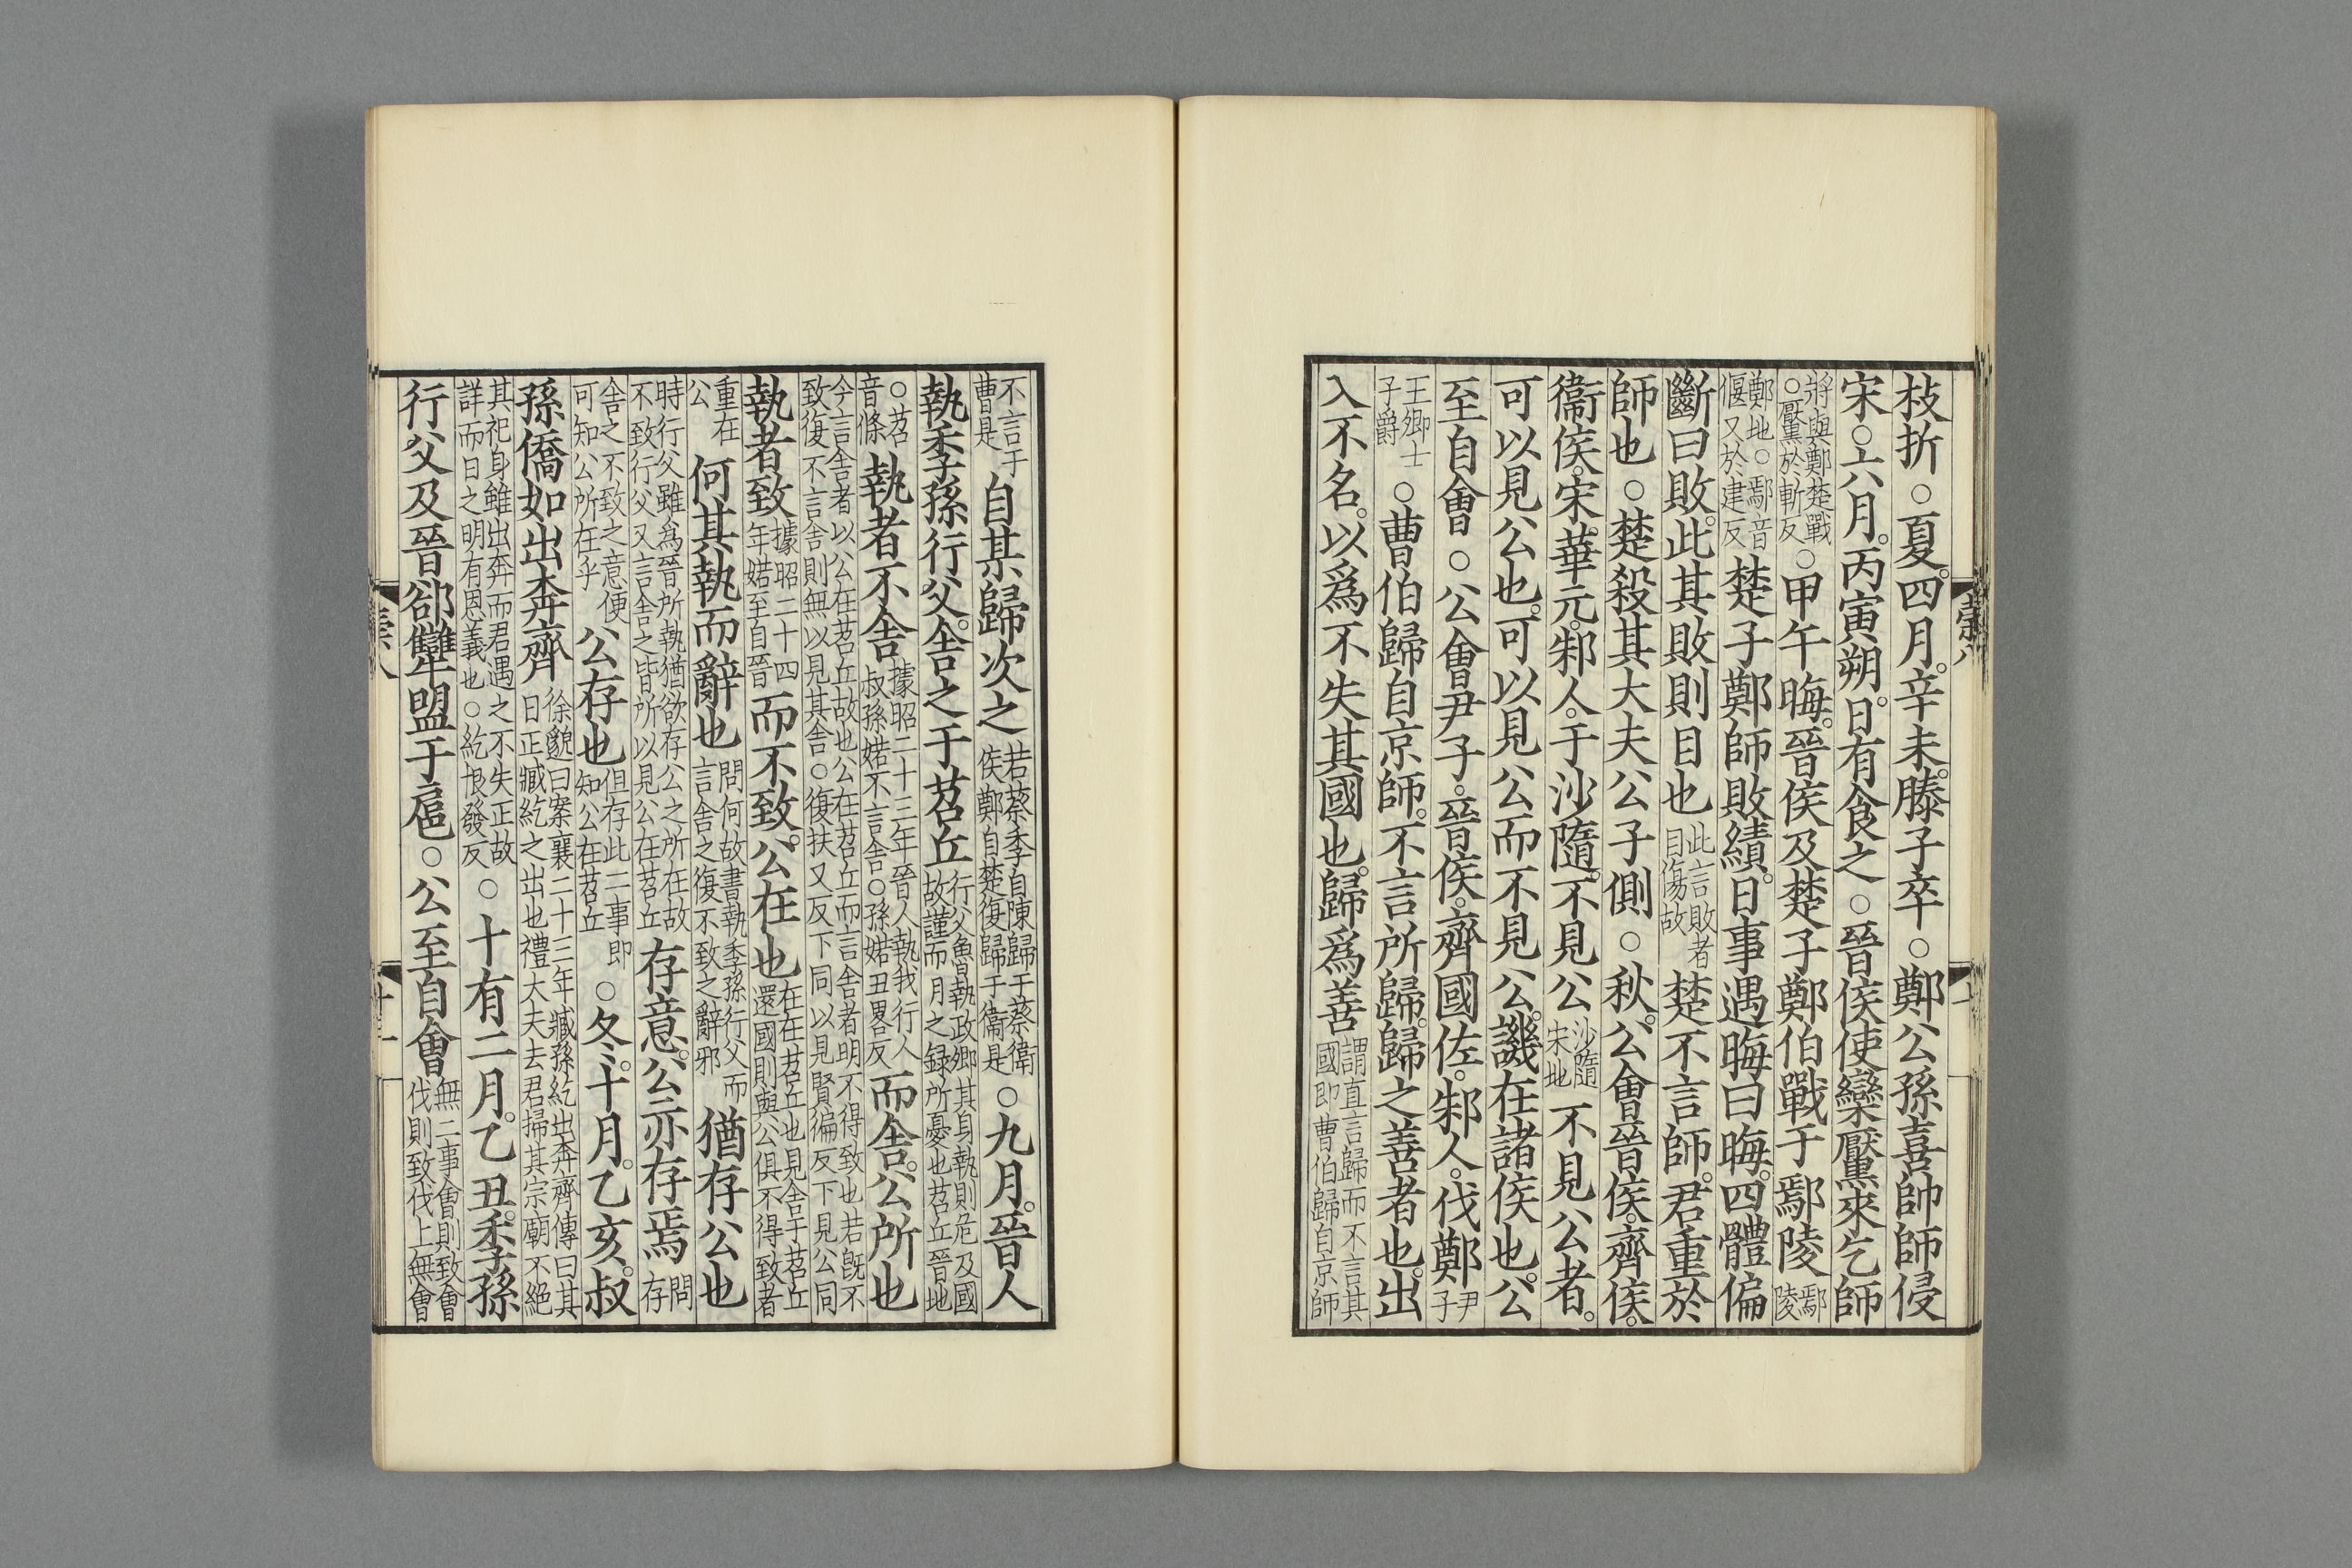 枝折○夏。四月。辛未。滕子卒○鄭公孫喜帥師侵
宋○六月。丙寅朔。日有食之○晉侯使欒黶來乞師
將與鄭楚戰○黶於斬反○甲午晦。晉侯及楚子鄭伯戰于鄢陵鄢陵
鄭地○鄢音偃又於建反楚子鄭師敗績。日事遇晦曰晦。四體偏
斷曰敗。此其敗則目也此言敗者目傷故楚不言師。君重於
師也○楚殺其大夫公子側○秋。公會晉侯。齊侯。
衞侯。宋。華元。邾人。于沙隨。不見公沙隨宋地不見公者。
可以見公也。可以見公而不見公。譏在諸侯也。公
至自會○公會尹子。晉侯。齊國佐。邾人。伐鄭尹子
王卿士子爵○曹伯歸自京師。不言所歸。歸之善者也。出
入不名。以爲不失其國也。歸爲善謂直言歸而不言其國即曹伯歸自京師
不言于曹是自某歸次之若蔡季自陳歸于蔡衞侯鄭自楚復歸于衞是○九月。晉人
執季孫行父。舍之于苕丘行父魯執政卿其身執則危及國故謹而月之録所憂也苕丘晉地
○苕音條執者不舍據昭二十三年晉人執我行人叔孫婼不言舍○孫婼丑畧反而舍。公所也
今言舍者以公在苕丘故也公在苕丘而言舍者明不得致也若旣不致復不言舍則無以見其舍○復扶又反下同以見賢徧反下見公同
執者致據昭二十四年婼至自晉而不致。公在也在在苕丘也見舍于苕丘還國則與公俱不得致者
重在公何其執而辭也問何故書執季孫行父而言舍之復不致之辭邪猶存公也
時行父雖爲晉所執猶欲存公之所在故不致行父又言舍之皆所以見公在苕丘存意。公亦存焉問存
舍之不致之意便可知公所在乎公存也但存此二事即知公在苕丘○冬。十月。乙亥。叔
孫僑如出奔齊徐邈曰案襄二十三年臧孫紇出奔齊傳曰其日正臧紇之出也禮大夫去君掃其宗廟不絕
其祀身雖出奔而君遇之不失正故詳而日之明有恩義也○紇恨發反○十有二月。乙丑。季孫
行父及晉郤犫盟于扈○公至自會無二事會則致會伐則致伐上無會